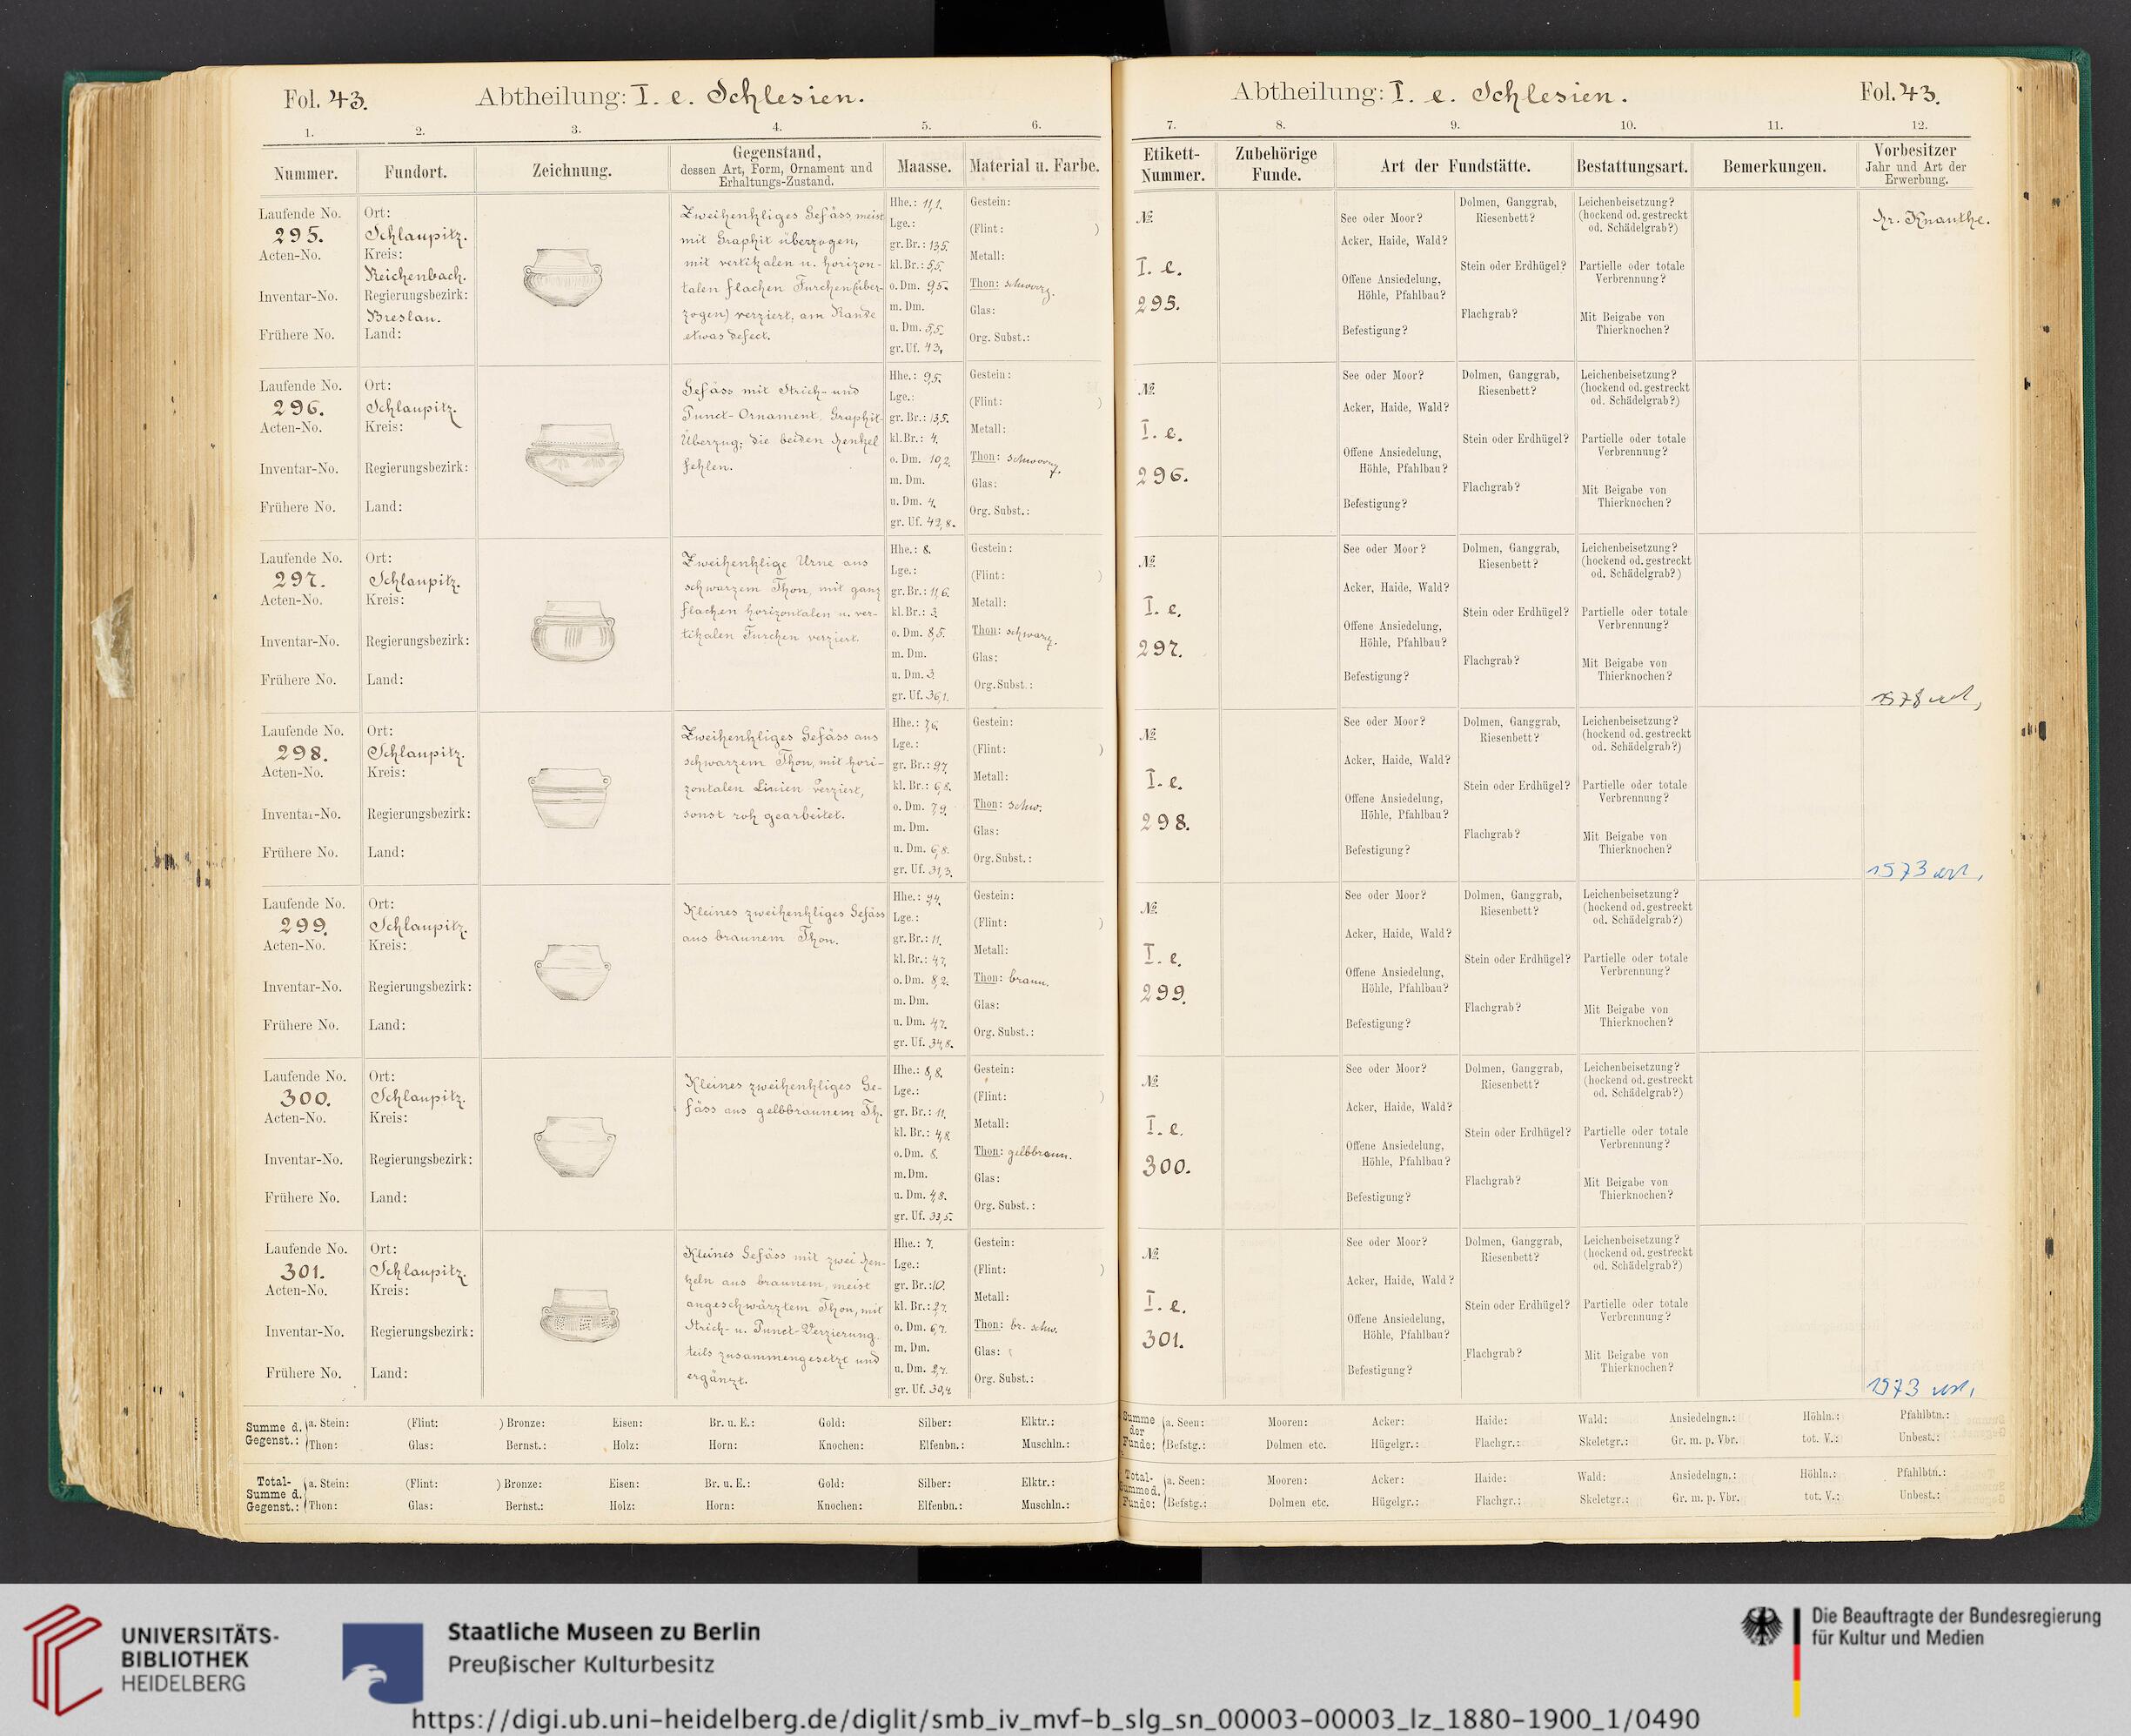 Fol. 43.
Abtheilung: I. e. Schlesien.
1. 2. 3. 4. 5. 6.
Nummer. Fundort. Zeichnung. Gegenstand, dessen Art, Form, Ornament und Erhaltungs-Zustand. Maasse. Material u. Farbe.
Laufende No. 295.
Acten-No.
Inventar-No.
Frühere No.
Ort: Schlaupitz.
Kreis: Reichenbach.
Regierungsbezirk: Breslau.
Land:
Zweihenkliges Gefäss meist
mit Graphit überzogen,
mit vertikalen u. horizon-
talen flachen Furchen (über-
zogen) verziert, am Rande
etwas defect.
Hhe.: 11,1.
Lge.:
gr. Br.: 13,5.
kl. Br.: 5,5.
o. Dm. 9,5.
m. Dm.
u. Dm. 5,5.
gr. Uf. 43,
Gestein:
(Flint: )
Metall:
Thon: schwarz.
Glas:
Org. Subst.:
Laufende No. 296.
Acten-No.
Inventar-No.
Frühere No.
Ort: Schlaupitz.
Kreis:
Regierungsbezirk:
Land:
Gefäss mit Strich- und
Punct-Ornament. Graphit-
Überzug; die beiden Henkel
fehlen.
Hhe.: 9,5.
Lge.:
gr. Br.: 13,5.
kl. Br.: 4.
o. Dm. 10,2.
m. Dm.
u. Dm. 4.
gr. Uf. 42,8.
Gestein:
(Flint: )
Metall:
Thon: schwarz.
Glas:
Org. Subst.:
Laufende No. 297.
Acten-No.
Inventar-No.
Frühere No.
Ort: Schlaupitz.
Kreis:
Regierungsbezirk:
Land:
Zweihenklige Urne aus
schwarzem Thon, mit ganz
flachen horizontalen u. ver-
tikalen Furchen verziert.
Hhe.: 8.
Lge.:
gr. Br.: 11,6.
kl. Br.: 3.
o. Dm. 8,5.
m. Dm.
u. Dm. 3.
gr. Uf. 36,1.
Gestein:
(Flint: )
Metall:
Thon: schwarz.
Glas:
Org. Subst.:
Laufende No. 298.
Acten-No.
Inventar-No.
Frühere No.
Ort: Schlaupitz.
Kreis:
Regierungsbezirk:
Land:
Zweihenkliges Gefäss aus
schwarzem Thon, mit hori-
zontalen Linien verziert,
sonst roh gearbeitet.
Hhe.: 7,6.
Lge.:
gr. Br.: 9,7.
kl. Br.: 6,8.
o. Dm. 7,9.
m. Dm.
u. Dm. 6,8.
gr. Uf. 31,3.
Gestein:
(Flint: )
Metall:
Thon: schw.
Glas:
Org. Subst.:
Laufende No. 299.
Acten-No.
Inventar-No.
Frühere No.
Ort: Schlaupitz.
Kreis:
Regierungsbezirk:
Land:
Kleines zweihenkliges Gefäss
aus braunem Thon.
Hhe.: 9,4.
Lge.:
gr. Br.: 11.
kl. Br.: 4,7.
o. Dm. 8,2.
m. Dm.
u. Dm. 4,7.
gr. Uf. 34,8.
Gestein:
(Flint: )
Metall:
Thon: braun.
Glas:
Org. Subst.:
Laufende No. 300.
Acten-No.
Inventar-No.
Frühere No.
Ort: Schlaupitz.
Kreis:
Regierungsbezirk:
Land:
Kleines zweihenkliges Ge-
fäss aus gelbbraunem Th.
Hhe.: 8,8.
Lge.:
gr. Br.: 11.
kl. Br.: 4,8.
o. Dm. 8.
m. Dm.
u. Dm. 4,8.
gr. Uf. 33,5.
Gestein:
(Flint: )
Metall:
Thon: gelbbraun.
Glas:
Org. Subst.:
Laufende No. 301.
Acten-No.
Inventar-No.
Frühere No.
Ort: Schlaupitz.
Kreis:
Regierungsbezirk:
Land:
Kleines Gefäss mit zwei Hen-
keln aus braunem, meist
angeschwärztem Thon, mit
Strich- u. Punct-Verzierung.
teils zusammengesetzt und
ergänzt.
Hhe.: 7.
Lge.:
gr. Br.: 10.
kl. Br.: 2,7.
o. Dm. 6,7.
m. Dm.
u. Dm. 2,7.
gr. Uf. 30,4.
Gestein:
(Flint: )
Metall:
Thon: br. schw.
Glas:
Org. Subst.:
Summe d. Gegenst.: a. Stein: (Flint: ) Bronze: Eisen: Br. u. E.: Gold: Silber: Elktr.:
Thon: Glas: Bernst.: Holz: Horn: Knochen: Elfenbn.: Muschln.:
Total-Summe d. Gegenst.: a. Stein: (Flint: ) Bronze: Eisen: Br. u. E.: Gold: Silber: Elktr.:
Thon: Glas: Bernst.: Holz: Horn: Knochen: Elfenbn.: Muschln.:
Abtheilung: I. e. Schlesien.
Fol. 43.
7. 8. 9. 10. 11. 12.
Etikett-Nummer. Zubehörige Funde. Art der Fundstätte. Bestattungsart. Bemerkungen. Vorbesitzer Jahr und Art der Erwerbung.
№ I. e. 295.
See oder Moor?
Acker, Haide, Wald?
Offene Ansiedelung, Höhle, Pfahlbau?
Befestigung?
Dolmen, Ganggrab, Riesenbett?
Stein oder Erdhügel?
Flachgrab?
Leichenbeisetzung? (hockend od. gestreckt od. Schädelgrab?)
Partielle oder totale Verbrennung?
Mit Beigabe von Thierknochen?
Hr. Knauthe.
№ I. e. 296.
See oder Moor?
Acker, Haide, Wald?
Offene Ansiedelung, Höhle, Pfahlbau?
Befestigung?
Dolmen, Ganggrab, Riesenbett?
Stein oder Erdhügel?
Flachgrab?
Leichenbeisetzung? (hockend od. gestreckt od. Schädelgrab?)
Partielle oder totale Verbrennung?
Mit Beigabe von Thierknochen?
№ I. e. 297.
See oder Moor?
Acker, Haide, Wald?
Offene Ansiedelung, Höhle, Pfahlbau?
Befestigung?
Dolmen, Ganggrab, Riesenbett?
Stein oder Erdhügel?
Flachgrab?
Leichenbeisetzung? (hockend od. gestreckt od. Schädelgrab?)
Partielle oder totale Verbrennung?
Mit Beigabe von Thierknochen?
№ I. e. 298.
See oder Moor?
Acker, Haide, Wald?
Offene Ansiedelung, Höhle, Pfahlbau?
Befestigung?
Dolmen, Ganggrab, Riesenbett?
Stein oder Erdhügel?
Flachgrab?
Leichenbeisetzung? (hockend od. gestreckt od. Schädelgrab?)
Partielle oder totale Verbrennung?
Mit Beigabe von Thierknochen?
1973
№ I. e. 299.
See oder Moor?
Acker, Haide, Wald?
Offene Ansiedelung, Höhle, Pfahlbau?
Befestigung?
Dolmen, Ganggrab, Riesenbett?
Stein oder Erdhügel?
Flachgrab?
Leichenbeisetzung? (hockend od. gestreckt od. Schädelgrab?)
Partielle oder totale Verbrennung?
Mit Beigabe von Thierknochen?
№ I. e. 300.
See oder Moor?
Acker, Haide, Wald?
Offene Ansiedelung, Höhle, Pfahlbau?
Befestigung?
Dolmen, Ganggrab, Riesenbett?
Stein oder Erdhügel?
Flachgrab?
Leichenbeisetzung? (hockend od. gestreckt od. Schädelgrab?)
Partielle oder totale Verbrennung?
Mit Beigabe von Thierknochen?
№ I. e. 301.
See oder Moor?
Acker, Haide, Wald?
Offene Ansiedelung, Höhle, Pfahlbau?
Befestigung?
Dolmen, Ganggrab, Riesenbett?
Stein oder Erdhügel?
Flachgrab?
Leichenbeisetzung? (hockend od. gestreckt od. Schädelgrab?)
Partielle oder totale Verbrennung?
Mit Beigabe von Thierknochen?
1973
Summe der Funde: a. Seen: Mooren: Acker: Haide: Wald: Ansiedelngn.: Höhln.: Pfahlbtn.:
Befstg.: Dolmen etc. Hügelgr.: Flachgr.: Skeletgr.: Gr. m. p. Vbr. tot. V.: Unbest.:
Total-Summe d. Funde: a. Seen: Mooren: Acker: Haide: Wald: Ansiedelngn.: Höhln.: Pfahlbtn.:
Befstg.: Dolmen etc. Hügelgr.: Flachgr.: Skeletgr.: Gr. m. p. Vbr. tot. V.: Unbest.:
UNIVERSITÄTS-
BIBLIOTHEK
HEIDELBERG
Staatliche Museen zu Berlin
Preußischer Kulturbesitz
Die Beauftragte der Bundesregierung
für Kultur und Medien
https://digi.ub.uni-heidelberg.de/diglit/smb_iv_mvf-b_slg_sn_00003-00003_lz_1880-1900_1/0490